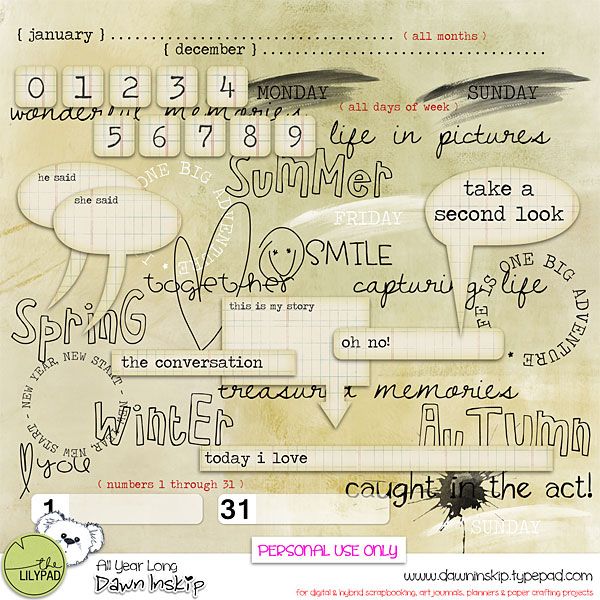 { january } ................................. ( all months )
{ december } .................................
0 1 2 3 4 MONDAY SUNDAY
wonderful memories ( all days of week )
5 6 7 8 9 life in pictures
he said
she said
ONE BIG ADVENTURE
SUMMER
take a
second look
FRIDAY
SMILE
together
capturing life
LIFE IS ONE BIG ADVENTURE
SPRING
this is my story
oh no!
the conversation
NEW YEAR, NEW START - NEW YEAR, NEW START -
treasured memories
WINTER
AUTUMN
I you
today i love
( numbers 1 through 31 )
caught in the act!
1 31
SUNDAY
the LILYPAD
All Year Long
Dawn Inskip
PERSONAL USE ONLY
www.dawninskip.typepad.com
for digital & hybrid scrapbooking, art journals, planners & paper crafting projects